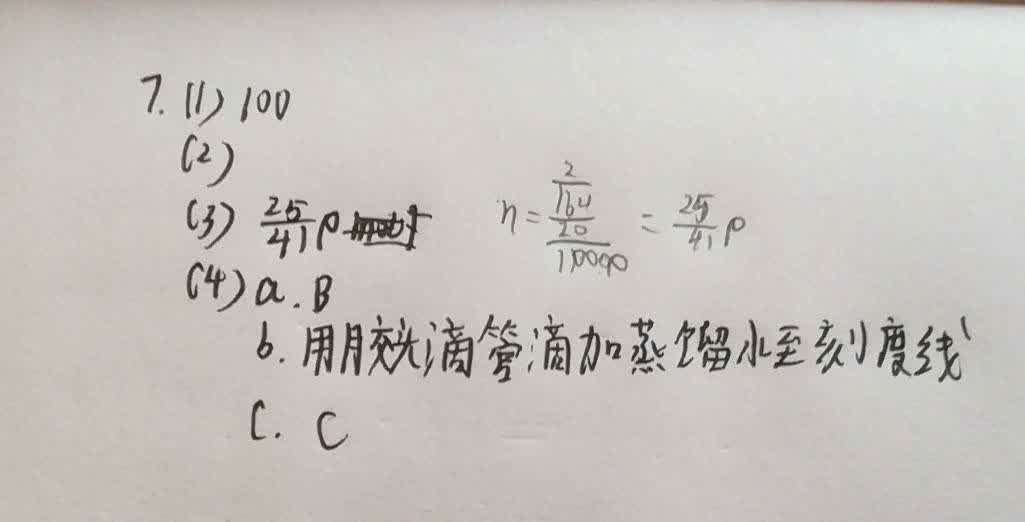 7. (1) 100
(2)
(3) 25/41 ρ n = 2/164/20/1000ρ = 25/41 ρ
(4) a. B
b. 用胶头滴管滴加蒸馏水至刻度线
C. C